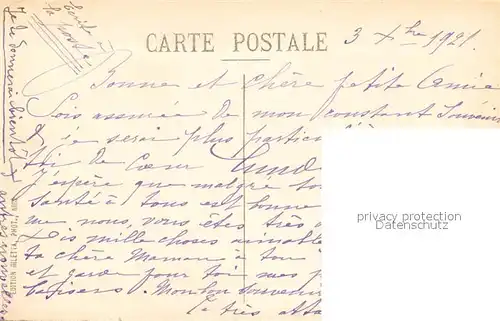 Écrite à
la poste
CARTE POSTALE
3 Xbre 1921.
Bonne et chère petite Amie
Sois assurée de mon constant Souvenir
je serai plus particul
toi de Cœur Lund
J'espère que malgré to
santé à tous est bonne
me nous, vous êtes très
Dis mille choses aimabl
ta chère Maman à ton
et garde pour toi mes
baisers. Mon bon souveni
Ta très atta
Je te donnerai bientôt
privacy protection
Datenschutz